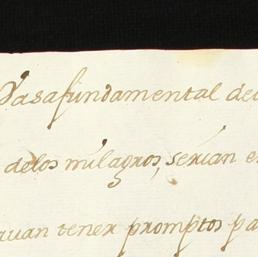 Vasa fundamental de
delos milagros, serian e
ruan tener promptos pa